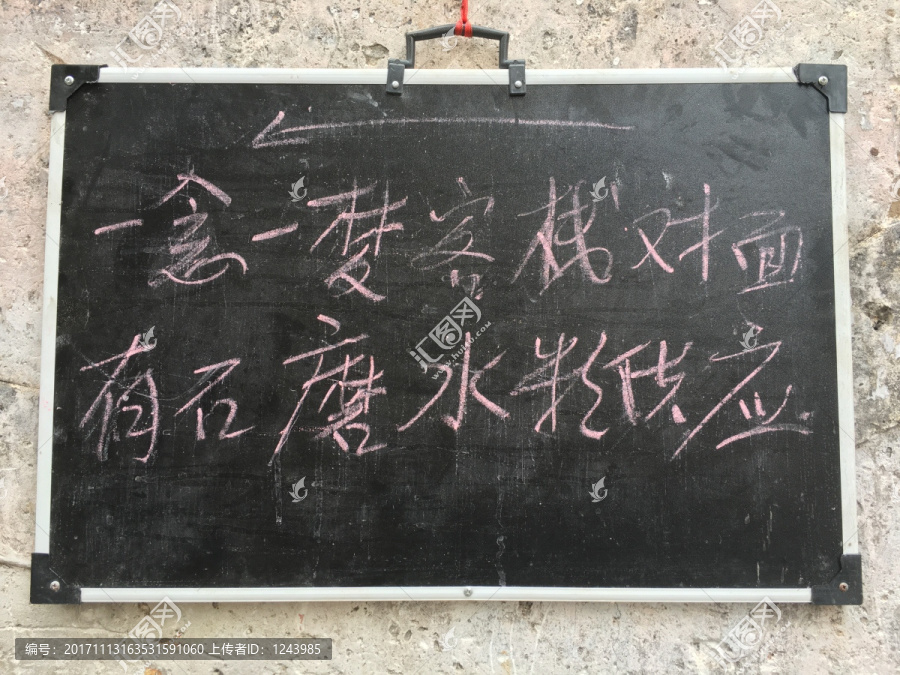 一念一梦客栈对面
有石磨水粉供应
汇图网
www.huitu.com
编号：20171113163531591060 上传者ID：1243985